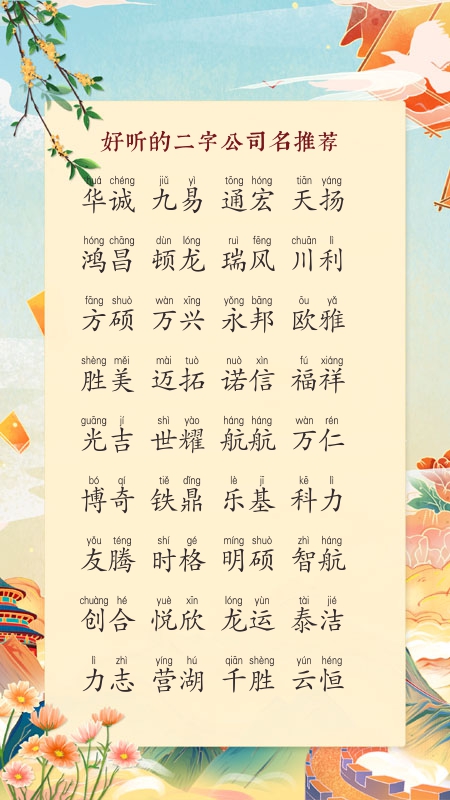 好听的二字公司名推荐
huá chéng jiǔ yì tōng hóng tiān yáng
华诚 九易 通宏 天扬
hóng chāng dùn lóng ruì fēng chuān lì
鸿昌 顿龙 瑞风 川利
fāng shuò wàn xīng yǒng bāng ōu yǎ
方硕 万兴 永邦 欧雅
shèng měi mài tuò nuò xìn fú xiáng
胜美 迈拓 诺信 福祥
guāng jí shì yào háng háng wàn rén
光吉 世耀 航航 万仁
bó qí tiě dǐng lè jī kē lì
博奇 铁鼎 乐基 科力
yǒu téng shí gé míng shuò zhì háng
友腾 时格 明硕 智航
chuàng hé yuè xīn lóng yùn tài jié
创合 悦欣 龙运 泰洁
lì zhì yíng hú qiān shèng yún héng
力志 营湖 千胜 云恒